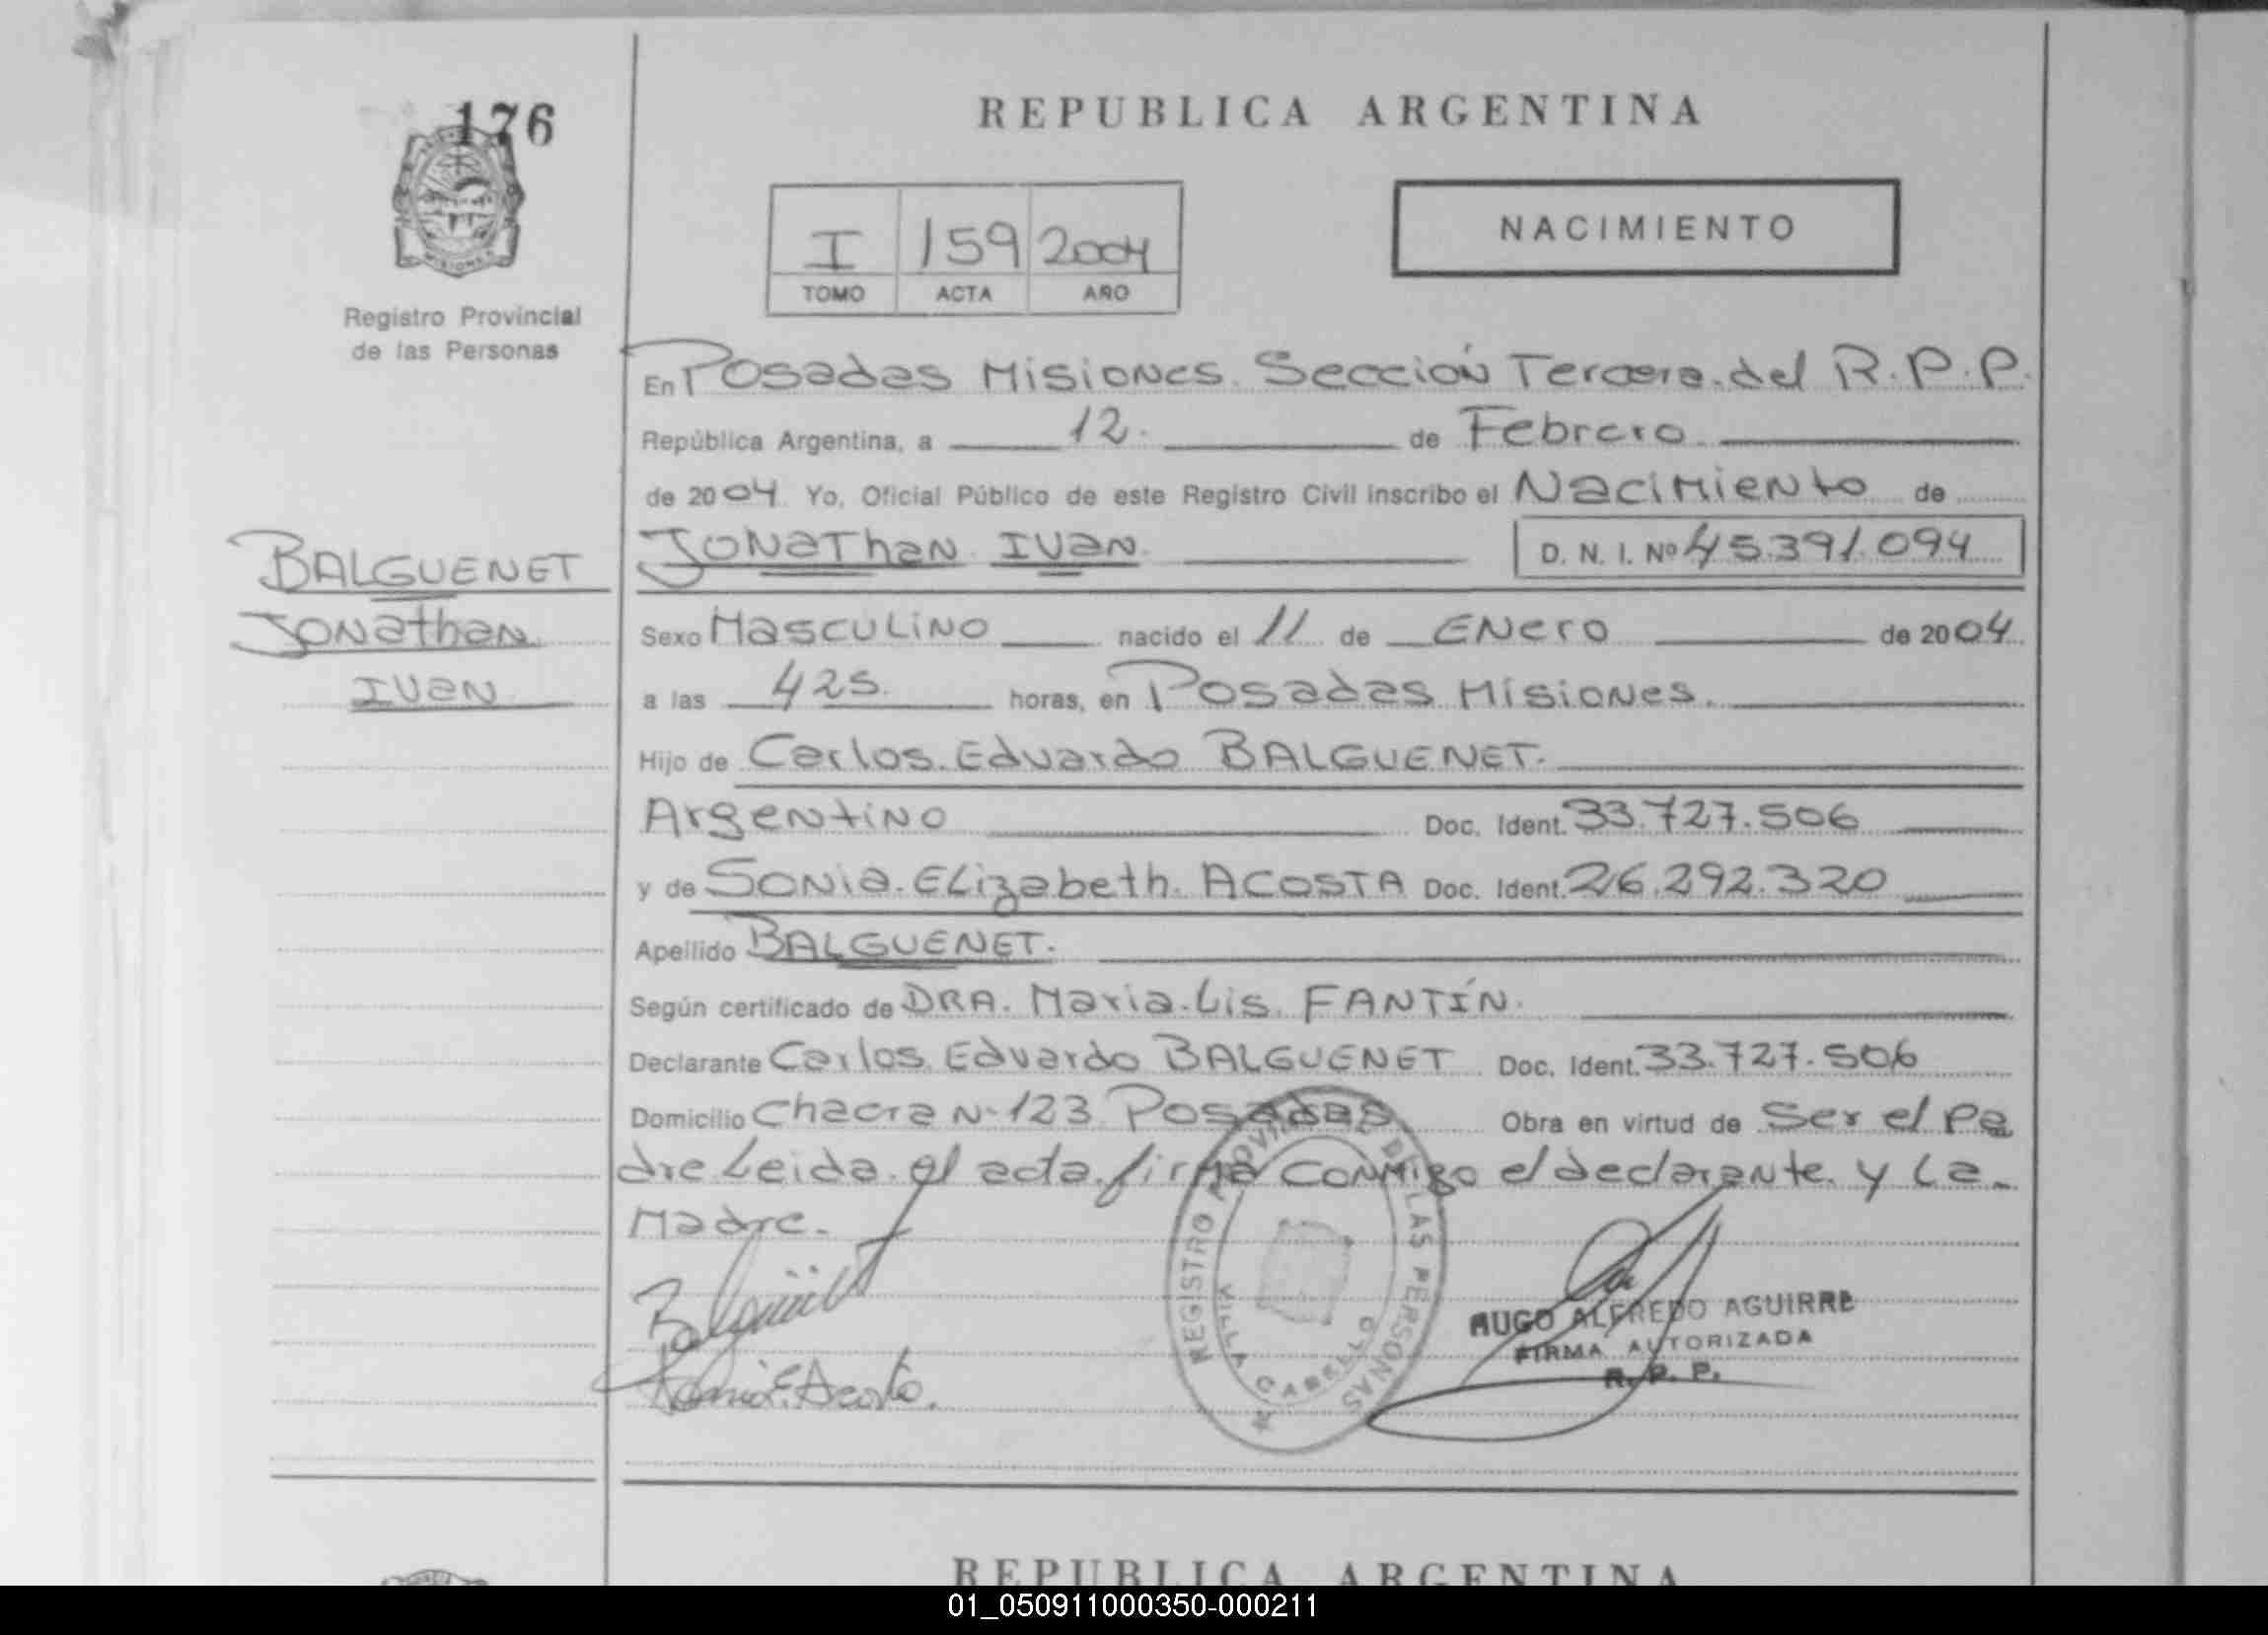 176
REPUBLICA ARGENTINA
NACIMIENTO
I 159 2004
TOMO ACTA AÑO
MISIONES
Registro Provincial
de las Personas
En Posadas Misiones. Sección Tercera del R.P.P.
República Argentina, a 12. de Febrero
de 2004 Yo, Oficial Público de este Registro Civil inscribo el Nacimiento de
BALGUENET
Jonathan
Ivan
Jonathan Ivan. D. N. I. Nº 45.391.094
Sexo Masculino nacido el 11 de Enero de 2004
a las 425. horas, en Posadas Misiones.
Hijo de Carlos Eduardo BALGUENET.
Argentino Doc. Ident. 33.727.506
y de Sonia Elizabeth ACOSTA Doc. Ident. 26.292.320
Apellido BALGUENET.
Según certificado de DRA. Maria Lis FANTÍN.
Declarante Carlos Eduardo BALGUENET Doc. Ident. 33.727.506
Domicilio Chacra N- 123 Posadas Obra en virtud de Ser el Pa
dre Leida el acta firma conmigo el declarante y la
Madre.
REGISTRO PROVINCIAL DE LAS PERSONAS
VILLA CABELLO
HUGO ALFREDO AGUIRRE
FIRMA AUTORIZADA
R. P. P.
Sonia E. Acosta.
REPUBLICA ARGENTINA
01_050911000350-000211